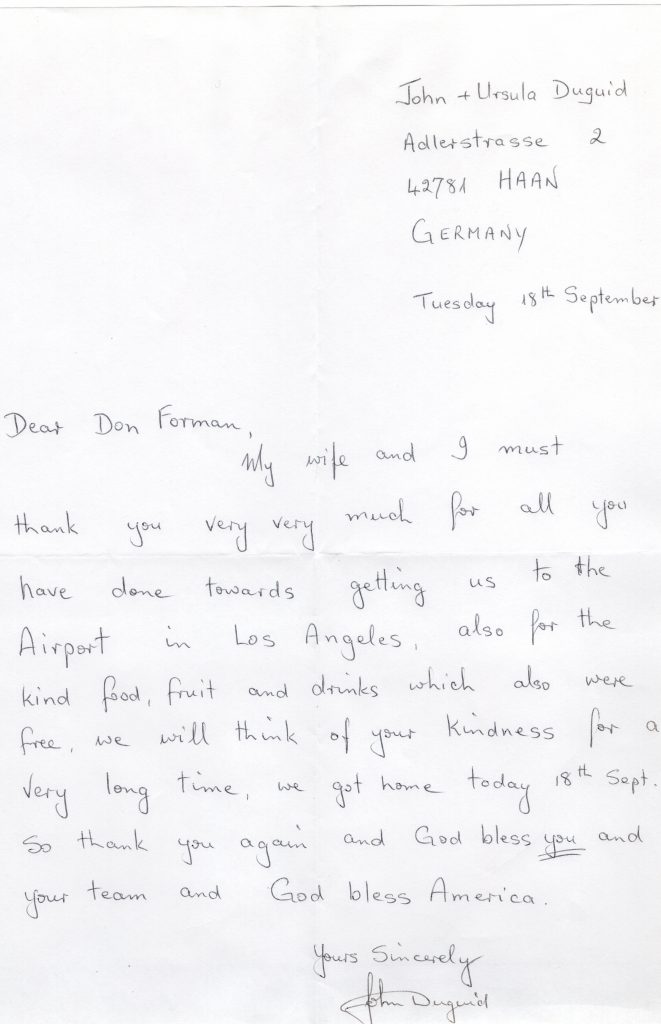 John + Ursula Duguid
Adlerstrasse 2
42781 HAAN
GERMANY
Tuesday 18th September
Dear Don Forman,
My wife and I must
thank you very very much for all you
have done towards getting us to the
Airport in Los Angeles, also for the
kind food, fruit and drinks which also were
free, we will think of your kindness for a
very long time, we got home today 18th Sept.
So thank you again and God bless you and
your team and God bless America.
Yours Sincerely
John Duguid